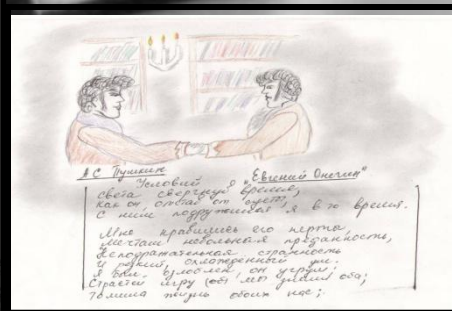 А С Пушкин "Евгений Онегин"
Условий
света свергнув бремя,
как он, отстав от суеты,
С ним подружился я в то время.
Мне нравились его черты,
мечтам невольная преданность,
Неподражательная странность
И резкий, охлажденный ум.
Я был озлоблен, он угрюм;
Страстей игру мы знали оба;
Томила жизнь обоих нас;